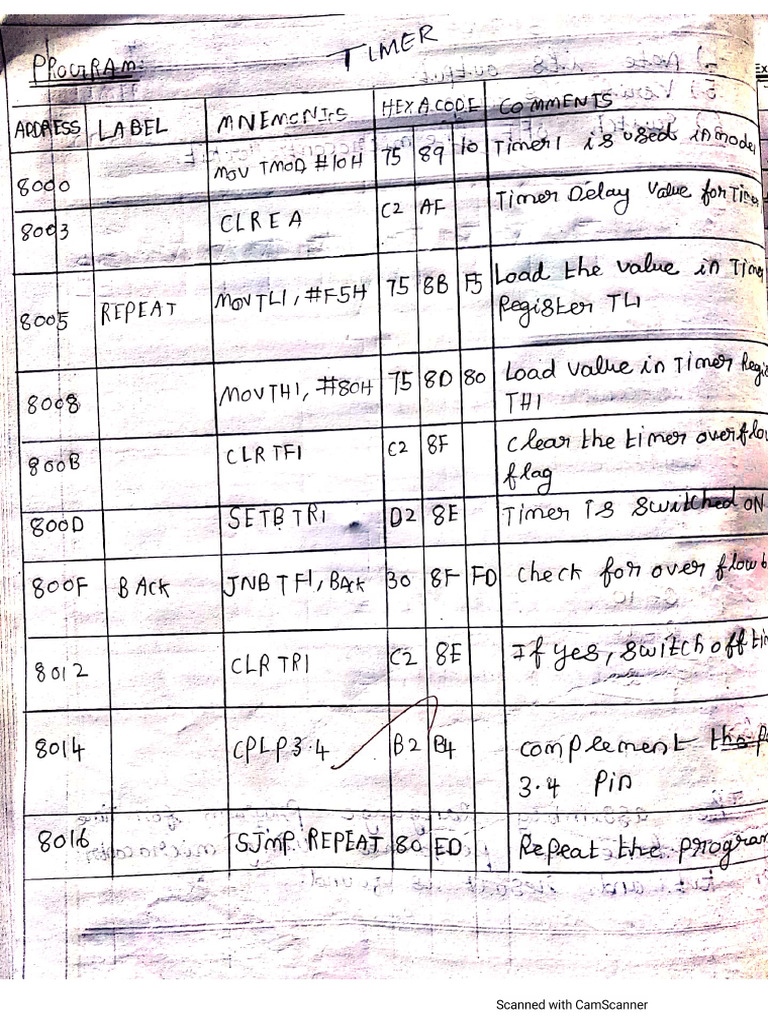 TIMER
PROGRAM:
ADDRESS LABEL MNEMONICS HEXACODE COMMENTS
8000 MOV TMOD #10H 75 89 10 Timer1 is used in mode1
8003 CLR EA C2 AF Timer Delay Value for Time
8005 REPEAT MOV TL1, #F5H 75 8B F5 Load the value in Time
Register TL1
8008 MOV TH1, #80H 75 8D 80 Load value in Timer Regi
TH1
800B CLR TF1 C2 8F Clear the timer overflow
flag
800D SETB TR1 D2 8E Timer is switched ON
800F BACK JNB TF1, BACK 30 8F FD Check for over flow b
8012 CLR TR1 C2 8E If yes, switch off tim
8014 CPL P3.4 B2 B4 complement the p
3.4 Pin
8016 SJMP REPEAT 80 ED Repeat the program
Scanned with CamScanner